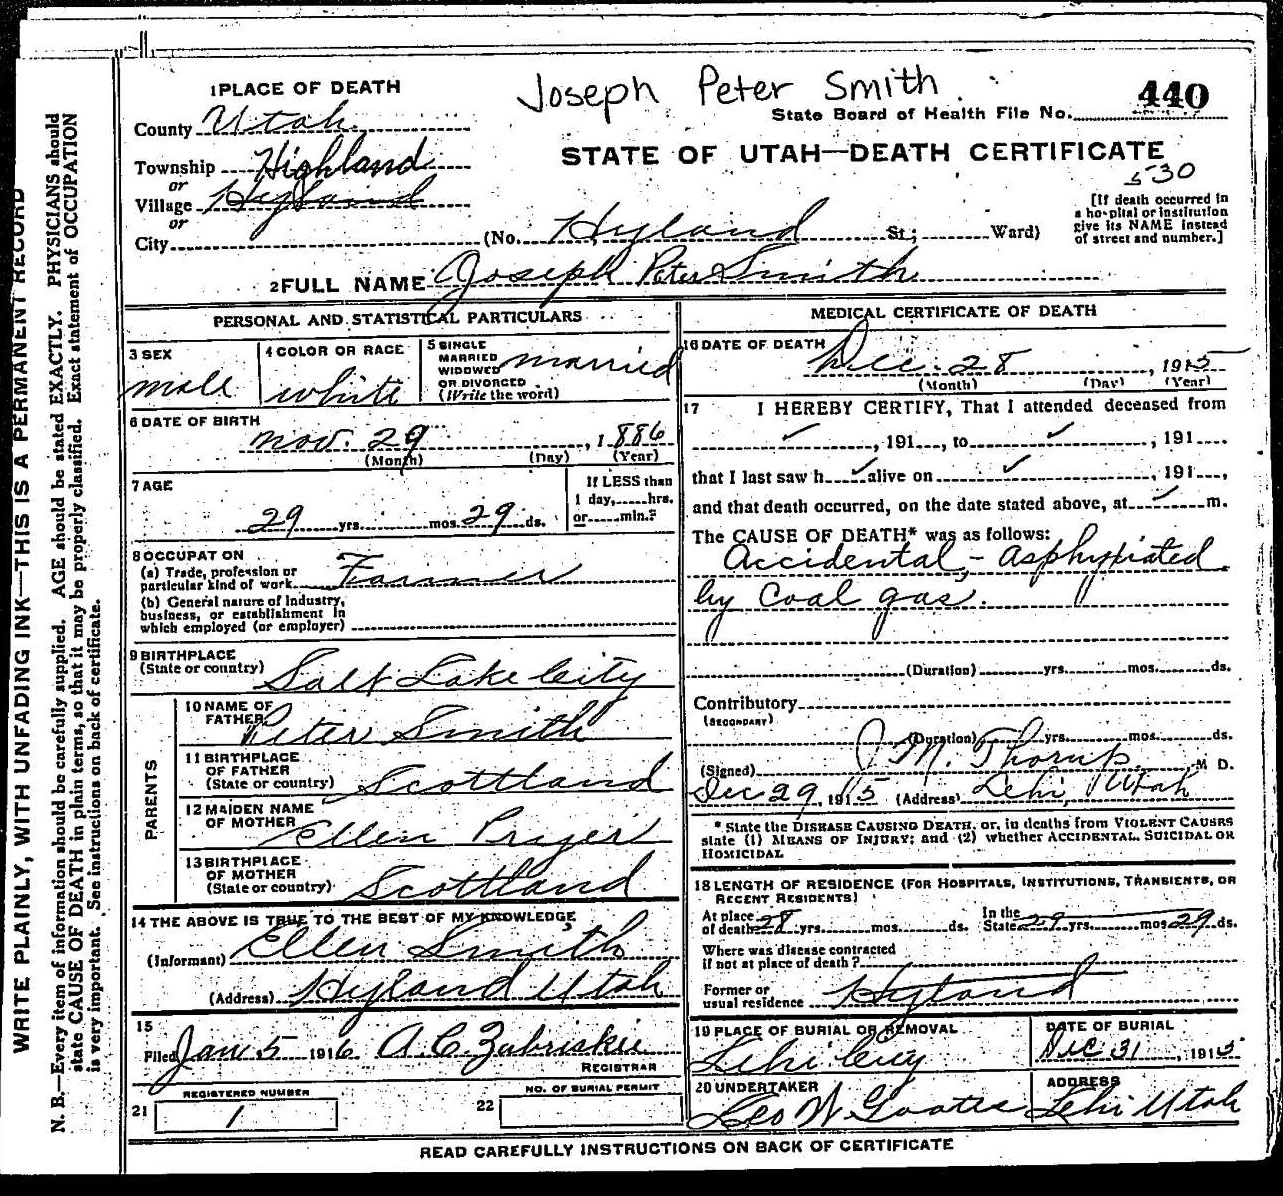 Joseph Peter Smith
440
State Board of Health File No.
STATE OF UTAH—DEATH CERTIFICATE
530
1 PLACE OF DEATH
County Utah
Township Highland
or
Village Hyland
or
City (No. Hyland St; Ward)
[If death occurred in a hospital or institution give its NAME instead of street and number.]
2 FULL NAME Joseph Peter Smith
PERSONAL AND STATISTICAL PARTICULARS
3 SEX male
4 COLOR OR RACE white
5 SINGLE MARRIED WIDOWED OR DIVORCED (Write the word) married
6 DATE OF BIRTH Nov. 29, 1886
(Month) (Day) (Year)
7 AGE
29 yrs. mos. 29 ds.
If LESS than 1 day, hrs. or min.?
8 OCCUPATON
(a) Trade, profession or particular kind of work Farmer
(b) General nature of Industry, business, or establishment in which employed (or employer)
9 BIRTHPLACE (State or country) Salt Lake City
PARENTS
10 NAME OF FATHER Peter Smith
11 BIRTHPLACE OF FATHER (State or country) Scottland
12 MAIDEN NAME OF MOTHER Ellen
13 BIRTHPLACE OF MOTHER (State or country) Scottland
14 THE ABOVE IS TRUE TO THE BEST OF MY KNOWLEDGE
(Informant) Ellen Smith
(Address) Hyland Utah
15
Filed Jan 5 1916 A. C. Zabriskie
REGISTRAR
21 REGISTERED NUMBER 1
22 NO. OF BURIAL PERMIT
MEDICAL CERTIFICATE OF DEATH
16 DATE OF DEATH Dec. 28, 1915
(Month) (Day) (Year)
17 I HEREBY CERTIFY, That I attended deceased from
, 191 , to , 191
that I last saw h alive on , 191 ,
and that death occurred, on the date stated above, at m.
The CAUSE OF DEATH* was as follows:
Accidental,- Asphyxiated
by Coal gas.
(Duration) yrs. mos. ds.
Contributory
(SECONDARY)
(Duration) yrs. mos. ds.
(Signed) J M. Thorup M D.
Dec 29, 1915 (Address) Lehi, Utah
* State the DISEASE CAUSING DEATH, or, in deaths from VIOLENT CAUSES
state (1) MEANS OF INJURY; and (2) whether ACCIDENTAL, SUICIDAL OR
HOMICIDAL
18 LENGTH OF RESIDENCE (FOR HOSPITALS, INSTITUTIONS, TRANSIENTS, OR
RECENT RESIDENTS)
At place of death 28 yrs. mos. ds. In the State 29 yrs. mos 29 ds.
Where was disease contracted
if not at place of death?
Former or usual residence Hyland
19 PLACE OF BURIAL OR REMOVAL Lehi City
DATE OF BURIAL Dec 31, 1915
20 UNDERTAKER Leo W Goates
ADDRESS Lehi Utah
READ CAREFULLY INSTRUCTIONS ON BACK OF CERTIFICATE
WRITE PLAINLY, WITH UNFADING INK—THIS IS A PERMANENT RECORD
N. B.—Every item of information should be carefully supplied. AGE should be stated EXACTLY. PHYSICIANS should
state CAUSE OF DEATH in plain terms, so that it may be properly classified. Exact statement of OCCUPATION
is very important. See instructions on back of certificate.